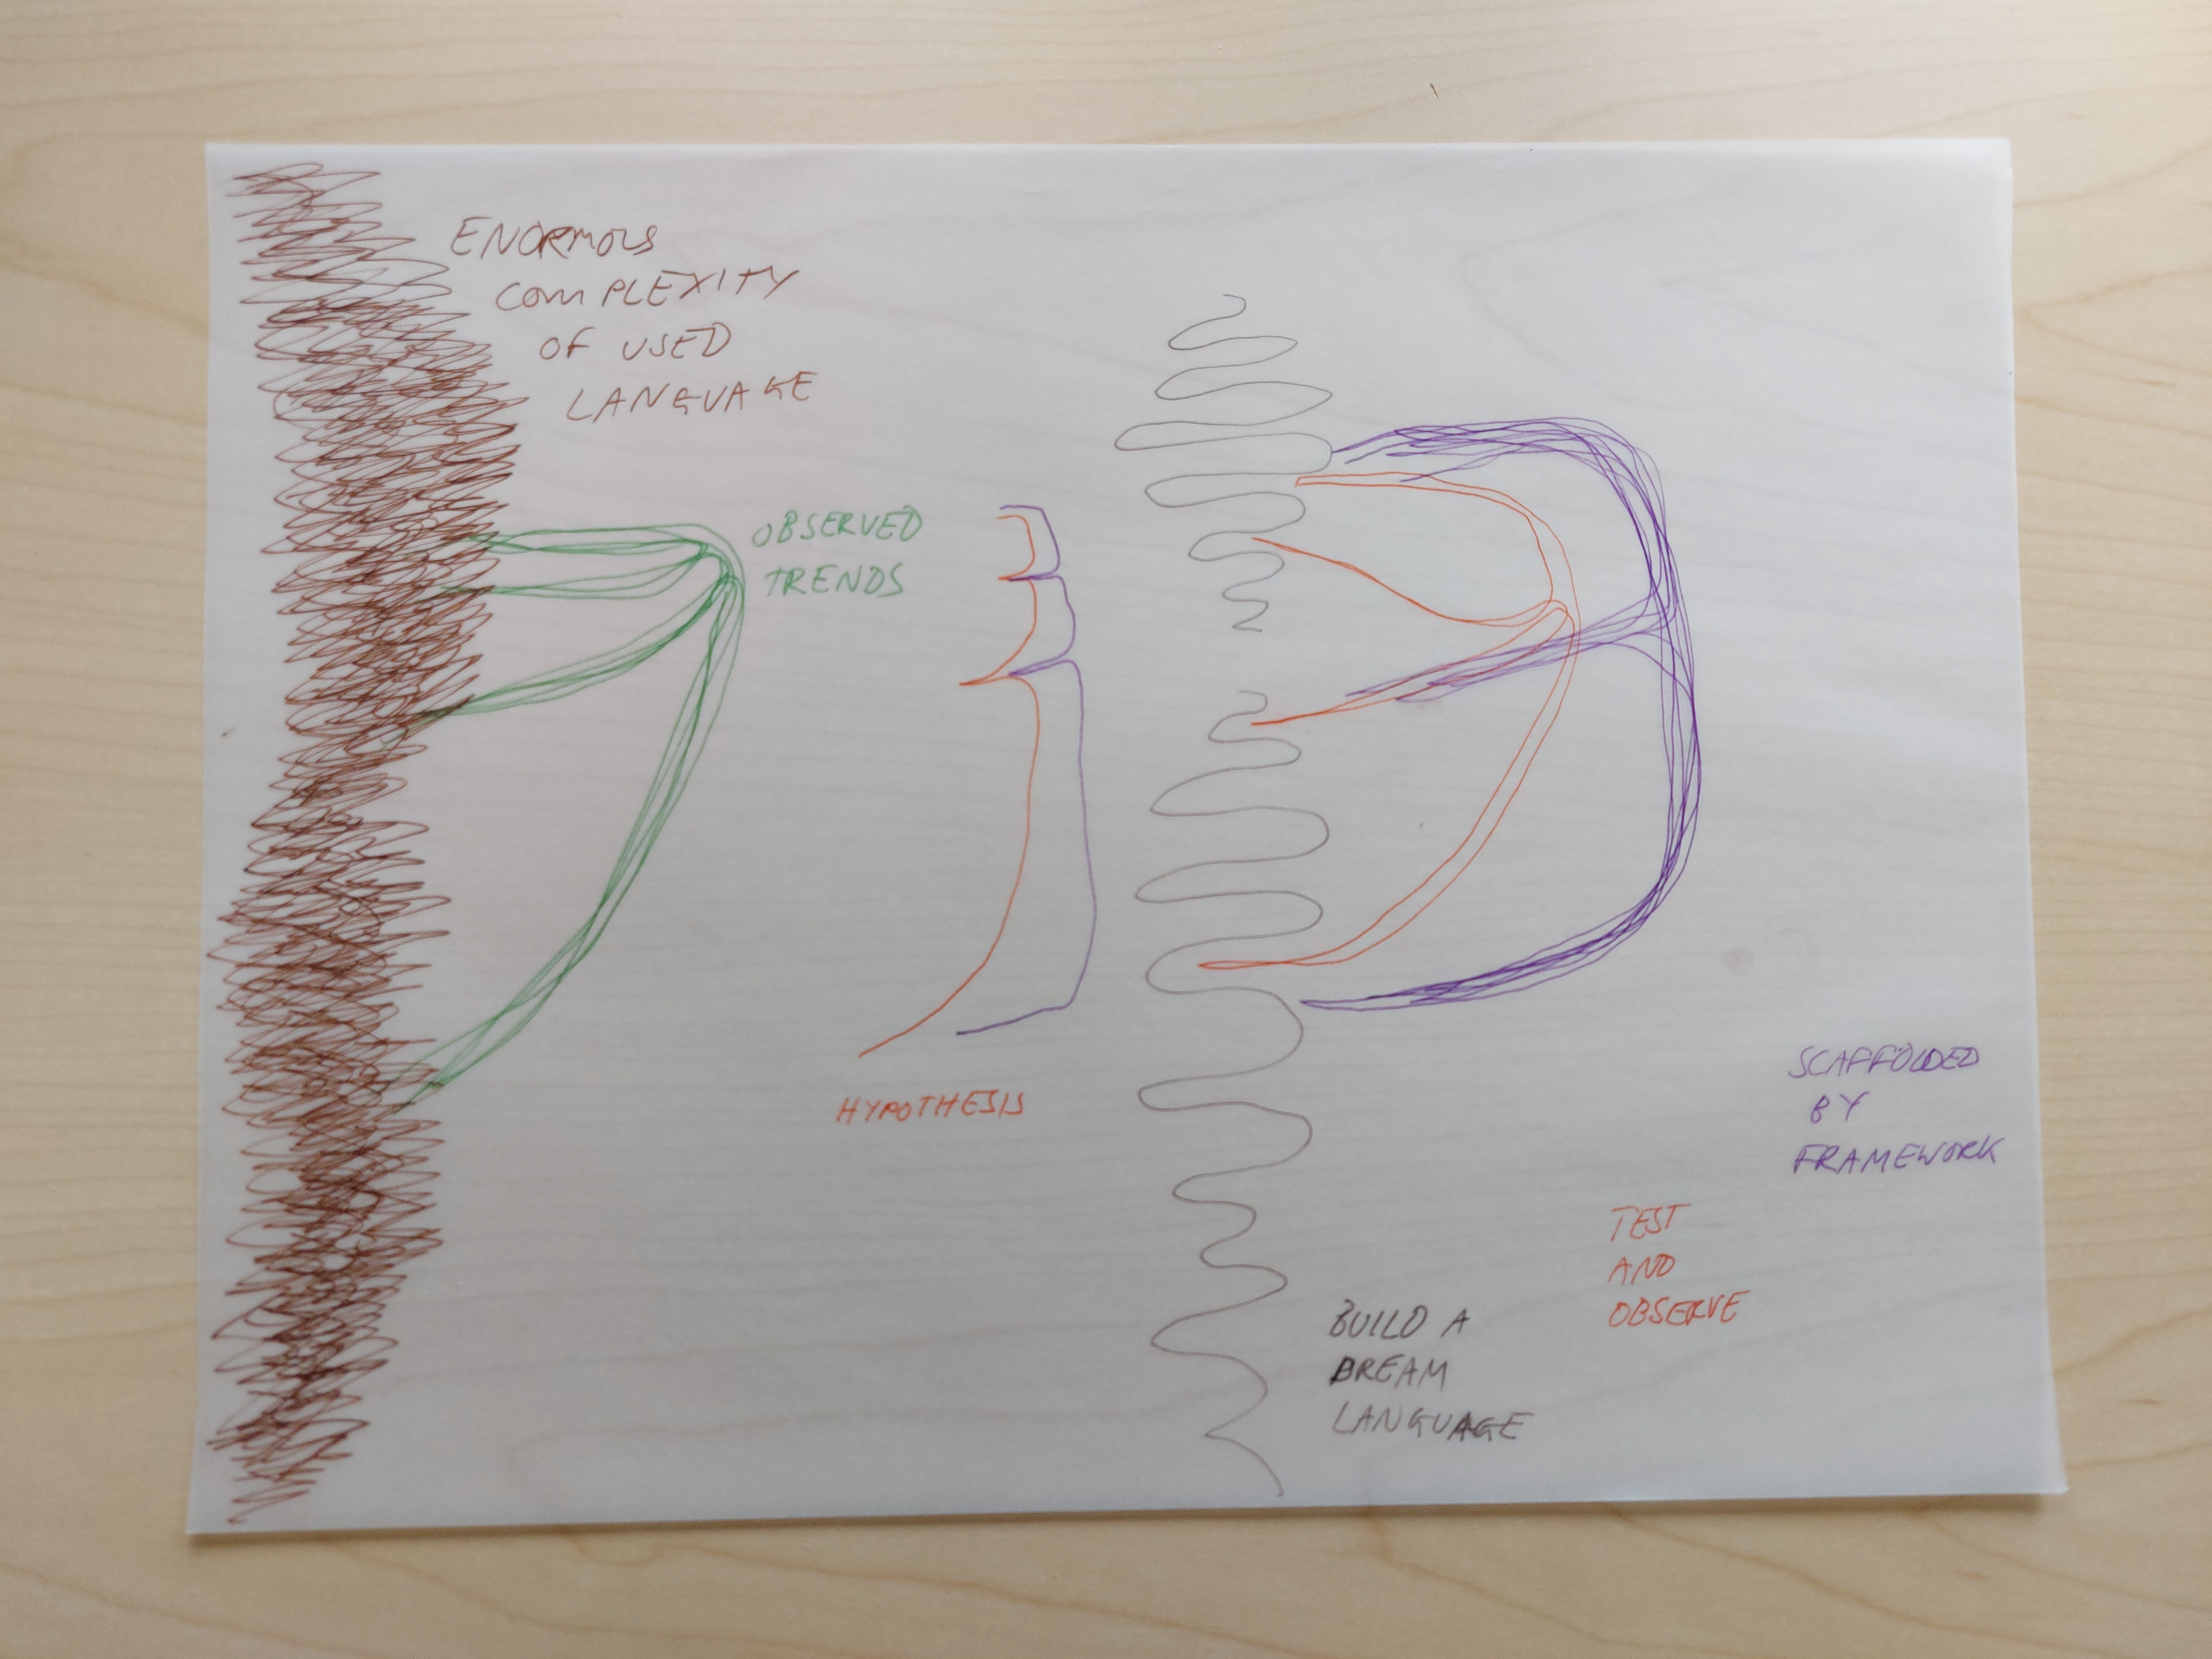 ENORMOUS
COMPLEXITY
OF USED
LANGUAGE
OBSERVED
TRENDS
HYPOTHESIS
SCAFFOLDED
BY
FRAMEWORK
TEST
AND
OBSERVE
BUILD A
DREAM
LANGUAGE